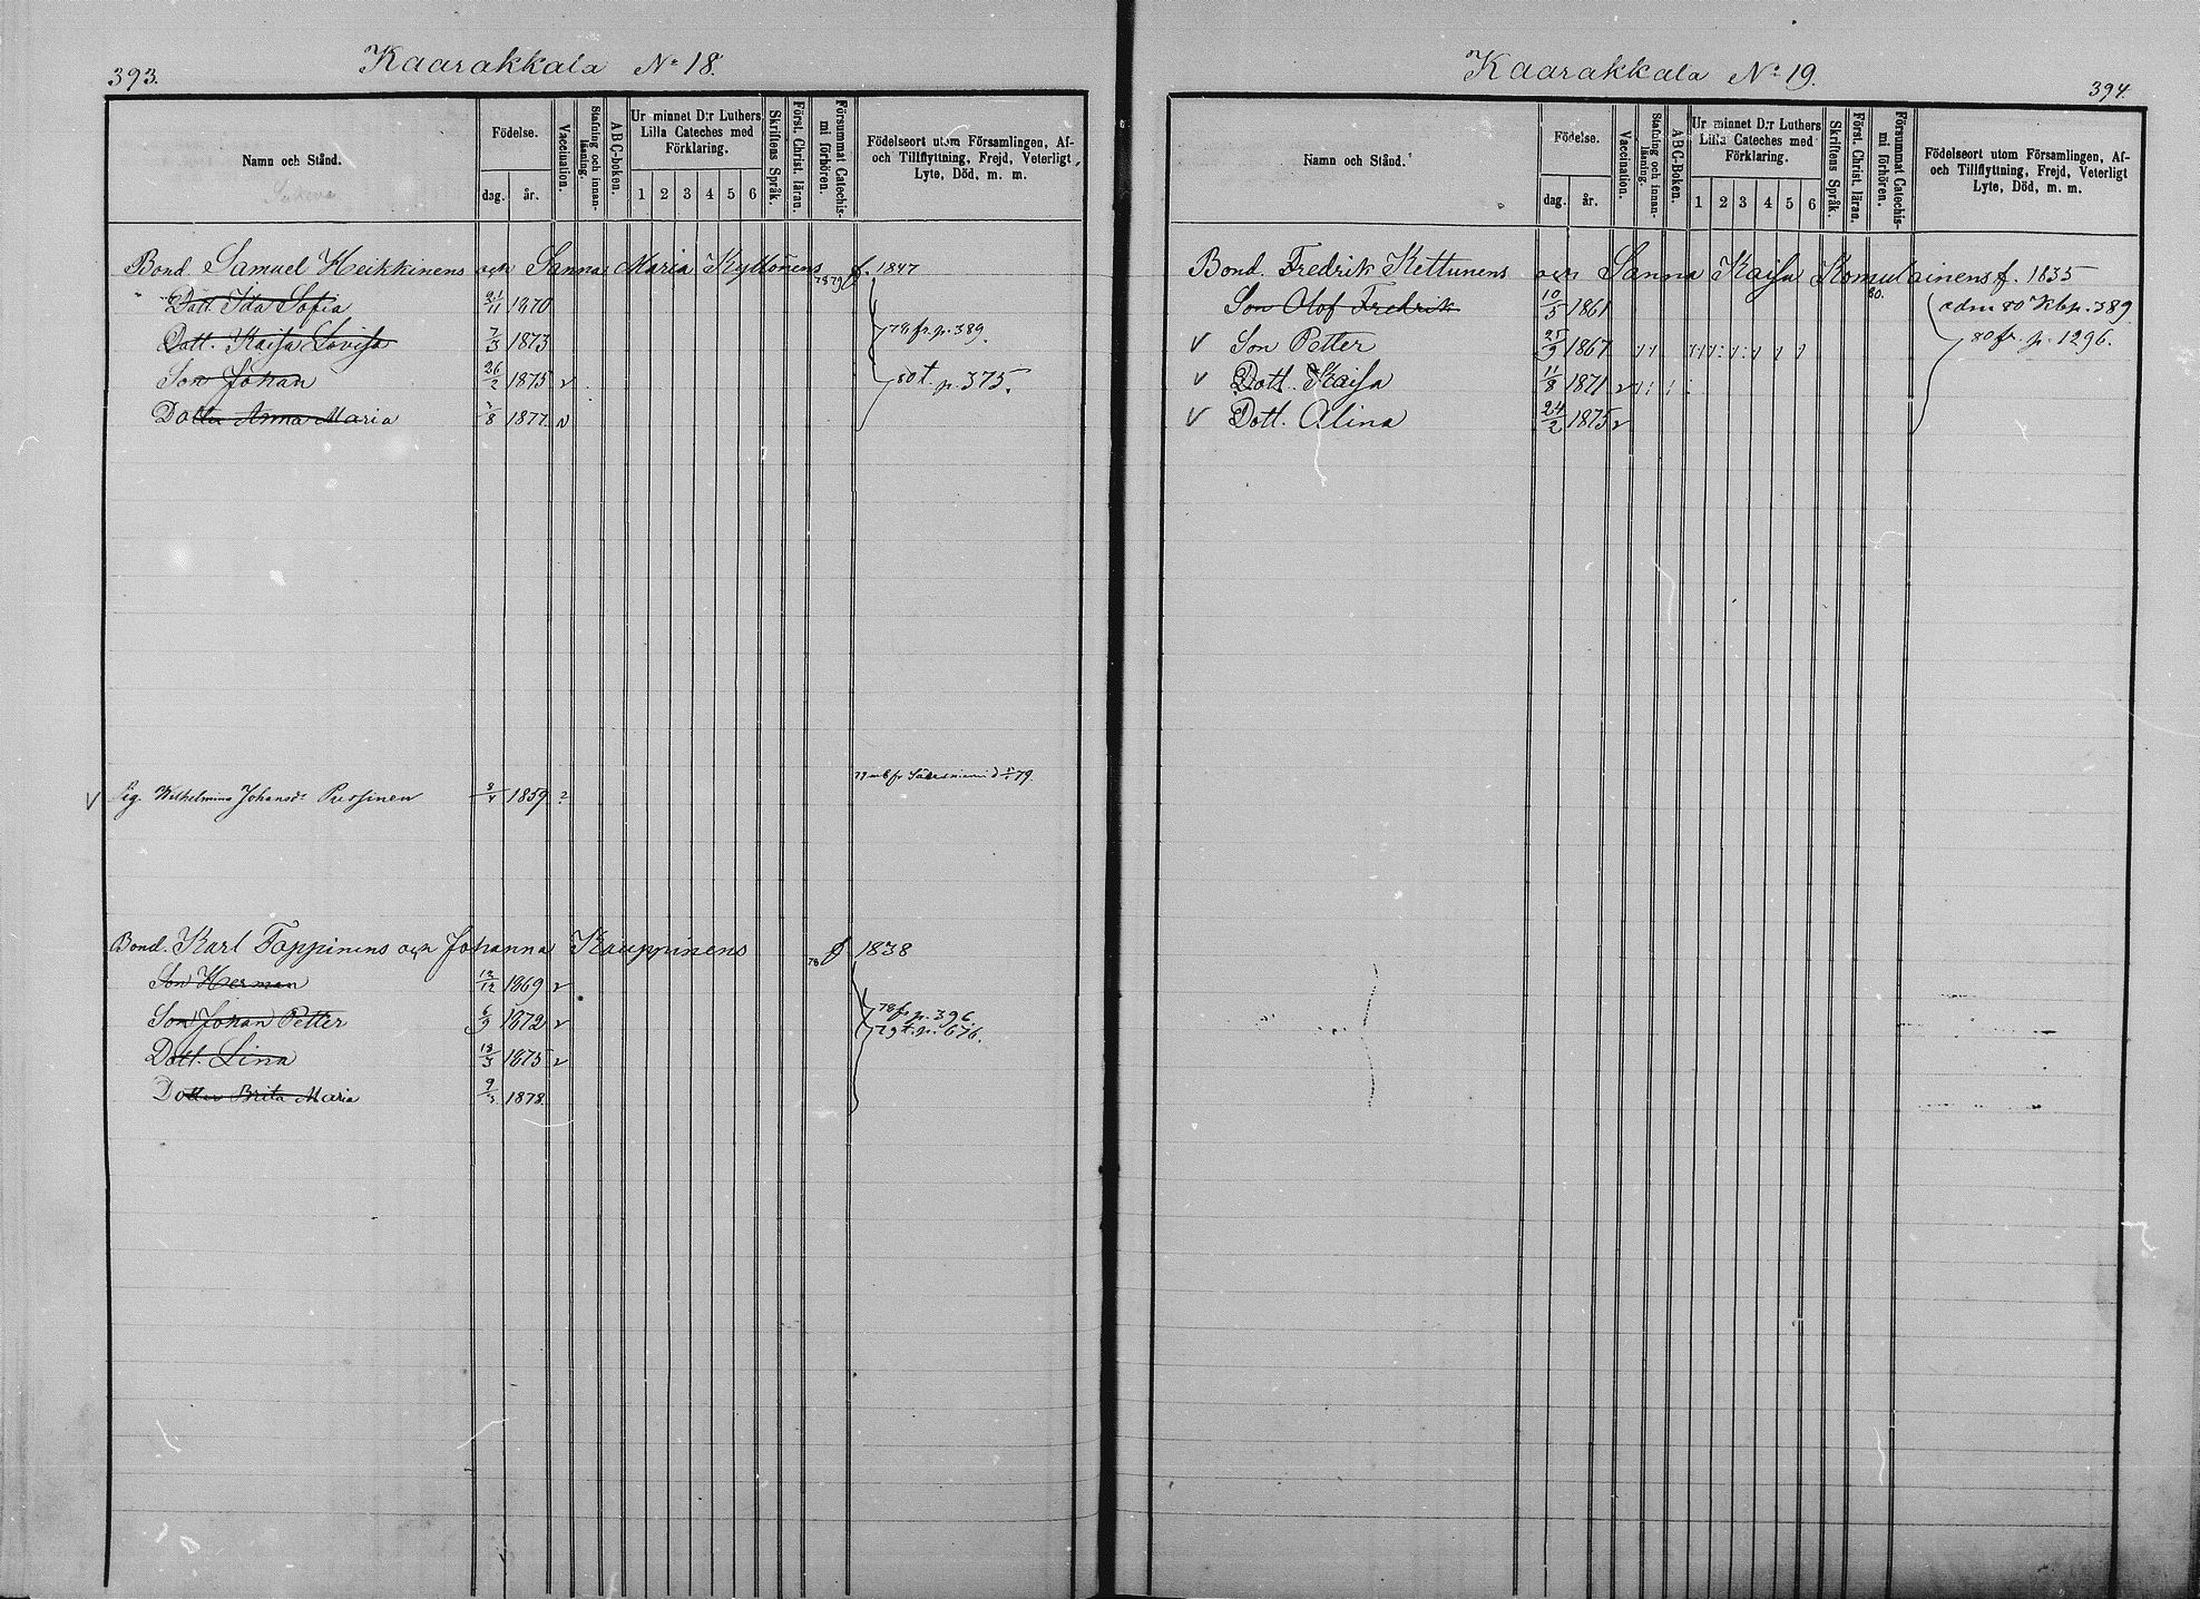 393.
Kaarakkala No 18.
Namn och Stånd.
Födelse.
dag.
år.
Vaccination.
Stafning och innan-läsning.
ABC-boken.
Ur minnet D:r Luthers
Lilla Cateches med
Förklaring.
1 2 3 4 5 6
Skriftens Språk.
Först. Christ. läran.
Försummat Catechis-
mi förhören.
Födelseort utom Församlingen, Af-
och Tillflyttning, Frejd, Veterligt
Lyte, Död, m. m.
Bond. Samuel Heikkinens och Sanna Maria Kyllönens 78 79 f. 1847
Dott. Ida Sofia 21/11 1870
Dott. Kaisa Lovisa 7/3 1873 78 fr. p. 389.
Son Johan 26/2 1875 v 80 t. p. 375.
Dotter Anna Maria 8 1877 v
79 mb fr Säräisniemi
V Pig. Wilhelmina Johansdr 8/4 1859 ?
Bond. Karl Toppinens och Johanna Kauppinens 78 f 1838
Son Herman 12 1869 v
Son Johan Petter 6/9 1872 v 78 fr p. 396
Dott. Lina 18/3 1875 v 79 t. p. 676.
Dotter Brita Maria 9/3 1878.
Kaarakkala No 19.
394.
Namn och Stånd.
Födelse.
dag.
år.
Vaccination.
Stafning och innan-läsning.
ABC-Boken.
Ur minnet D:r Luthers
Lilla Cateches med
Förklaring.
1 2 3 4 5 6
Skriftens Språk.
Först. Christ. läran.
Försummat Catechis-
mi förhören.
Födelseort utom Församlingen, Af-
och Tillflyttning, Frejd, Veterligt
Lyte, Död, m. m.
Bond. Fredrik Kettunens och Sanna Kaisa Komulainens f. 1835
Son Olof Fredrik 10/5 1861 80. adm 80 Kbp. 389
V Son Petter 25/9 1867 80 fr. p. 1296.
V Dott. Kaisa 11/8 1871 v
V Dott. Alina 24/2 1875 v